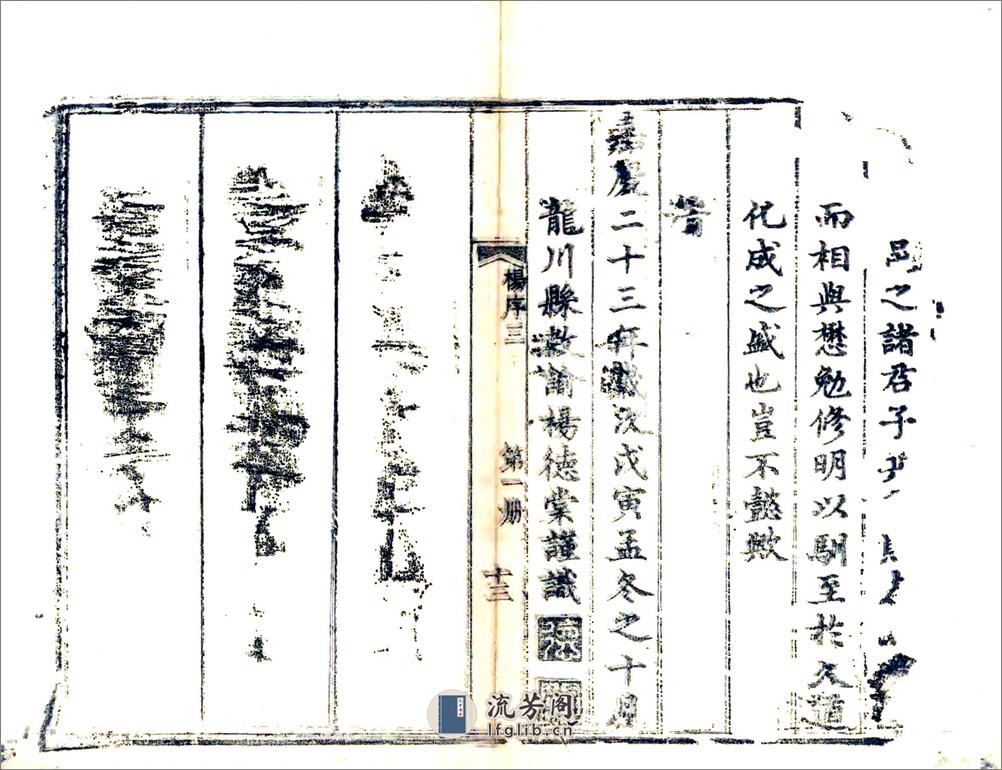 邑之諸君子
而相與懋勉修明以馴至於久道
化成之盛也豈不懿歟
旹
嘉慶二十三年歲次戊寅孟冬之十月
龍川縣教諭楊德棠謹識
楊序三
第一册
十三
流芳阁
lfglib.cn